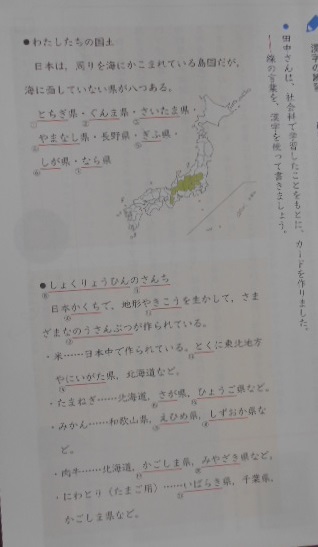 田中さんは、社会科で学習したことをもとに、カードを作りました。
線の言葉を、漢字を使って書きましょう。
●わたしたちの国土
日本は、周りを海にかこまれている島国だが、
海に面していない県が八つある。
とちぎ県・ぐんま県・さいたま県・
①②③
やまなし県・長野県・ぎふ県・
④⑤
しが県・なら県
⑥⑦
●しょくりょうひんのさんち
⑧⑨
日本かくちで、地形やきこうを生かして、さま
⑩⑪
ざまなのうさんぶつが作られている。
⑫
・米……日本中で作られている。とくに東北地方
⑬
やにいがた県、北海道など。
⑭
・たまねぎ……北海道、さが県、ひょうご県など。
⑮⑯
・みかん……和歌山県、えひめ県、しずおか県な
ど。
・肉牛……北海道、かごしま県、みやざき県など。
・にわとり（たまご用）……いばらき県、千葉県、
かごしま県など。